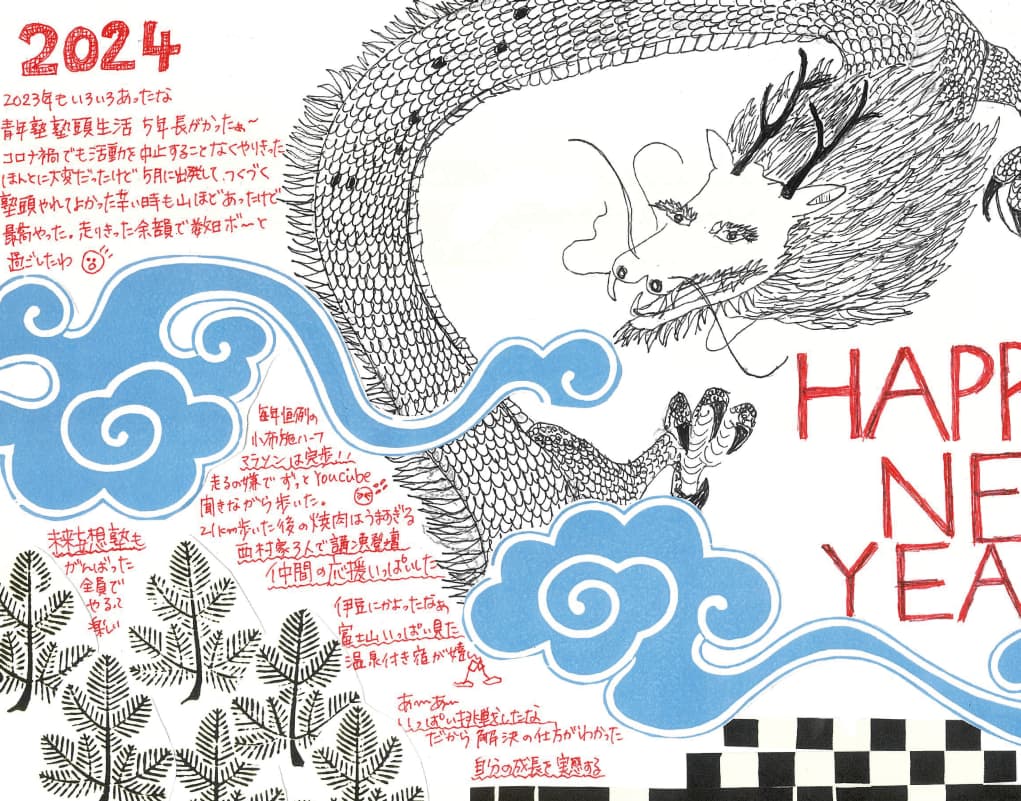 2024
2023年もいろいろあったな
青年塾塾頭生活 5年長がかったぁ〜
コロナ禍でも活動を中止することなくやりきった
ほんとに大変だったけど 5月に出発して、つくづく
塾頭やれてよかった 辛い時も山ほどあったけど
最高やった。走りきった余韻で数日ボ〜と
過ごしたわ
毎年恒例の
小布施ハーフ
マラソンは完歩!!
走るの嫌で ずっと YouCube
聞きながら歩いた。
21km歩いた後の焼肉はうますぎる
西村家3人で講演登壇
仲間の応援いっぱいした
未来妄想塾も
がんばった
全員で
やるって
楽しい
伊豆にかよったなぁ
富士山いっぱい見た
温泉付き宿が嬉しい
あ〜あ〜
いっぱい挑戦をしたな
だから 解決の仕方がわかった
自分の成長を実感する
HAPP
NE
YEA